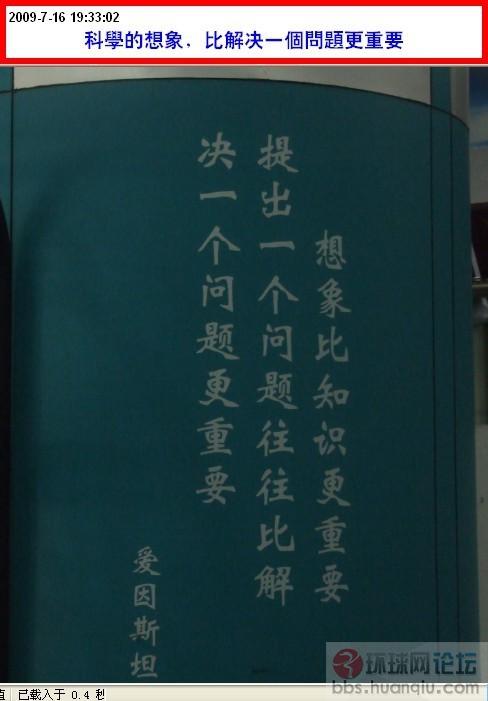 2009-7-16 19:33:02
科學的想象，比解决一個問題更重要
想象比知识更重要
提出一个问题往往比解
决一个问题更重要
爱因斯坦
环球网论坛
bbs.huanqiu.com
值 已载入于 0.4 秒